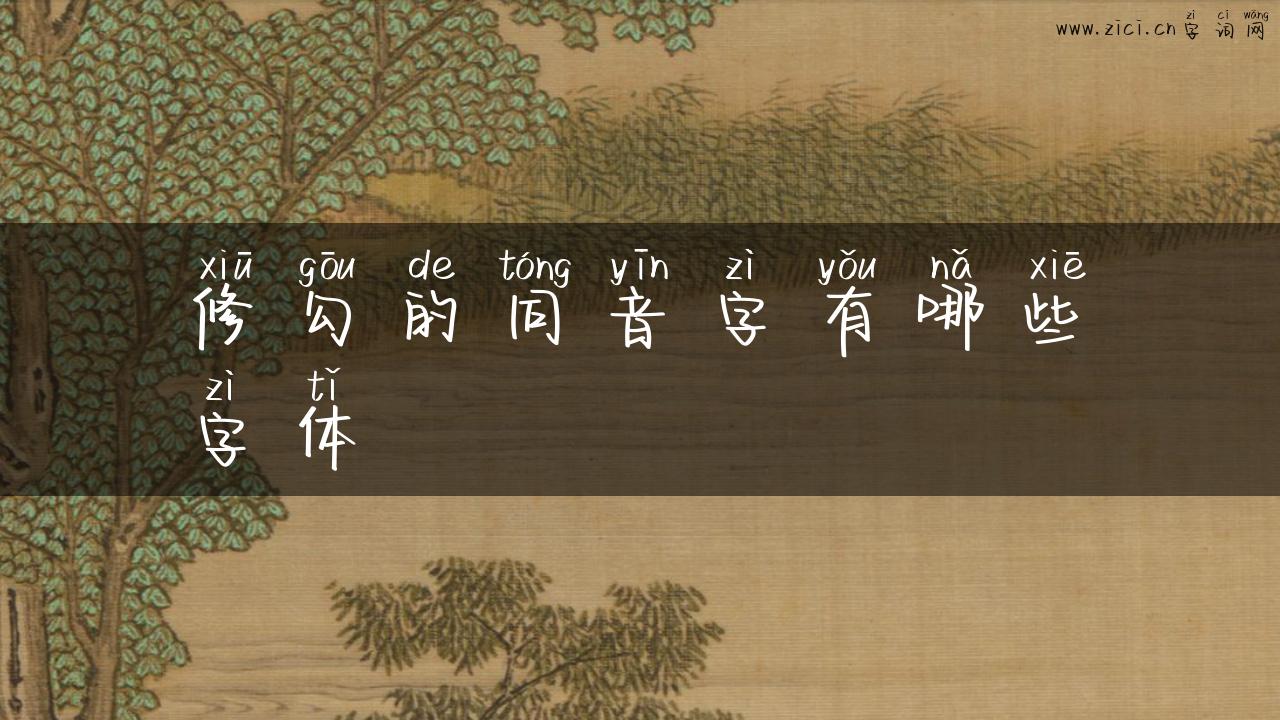 zì cí wǎng
www.zici.cn 字词网
xiū gōu de tóng yīn zì yǒu nǎ xiē
修勾的同音字有哪些
zì tǐ
字体